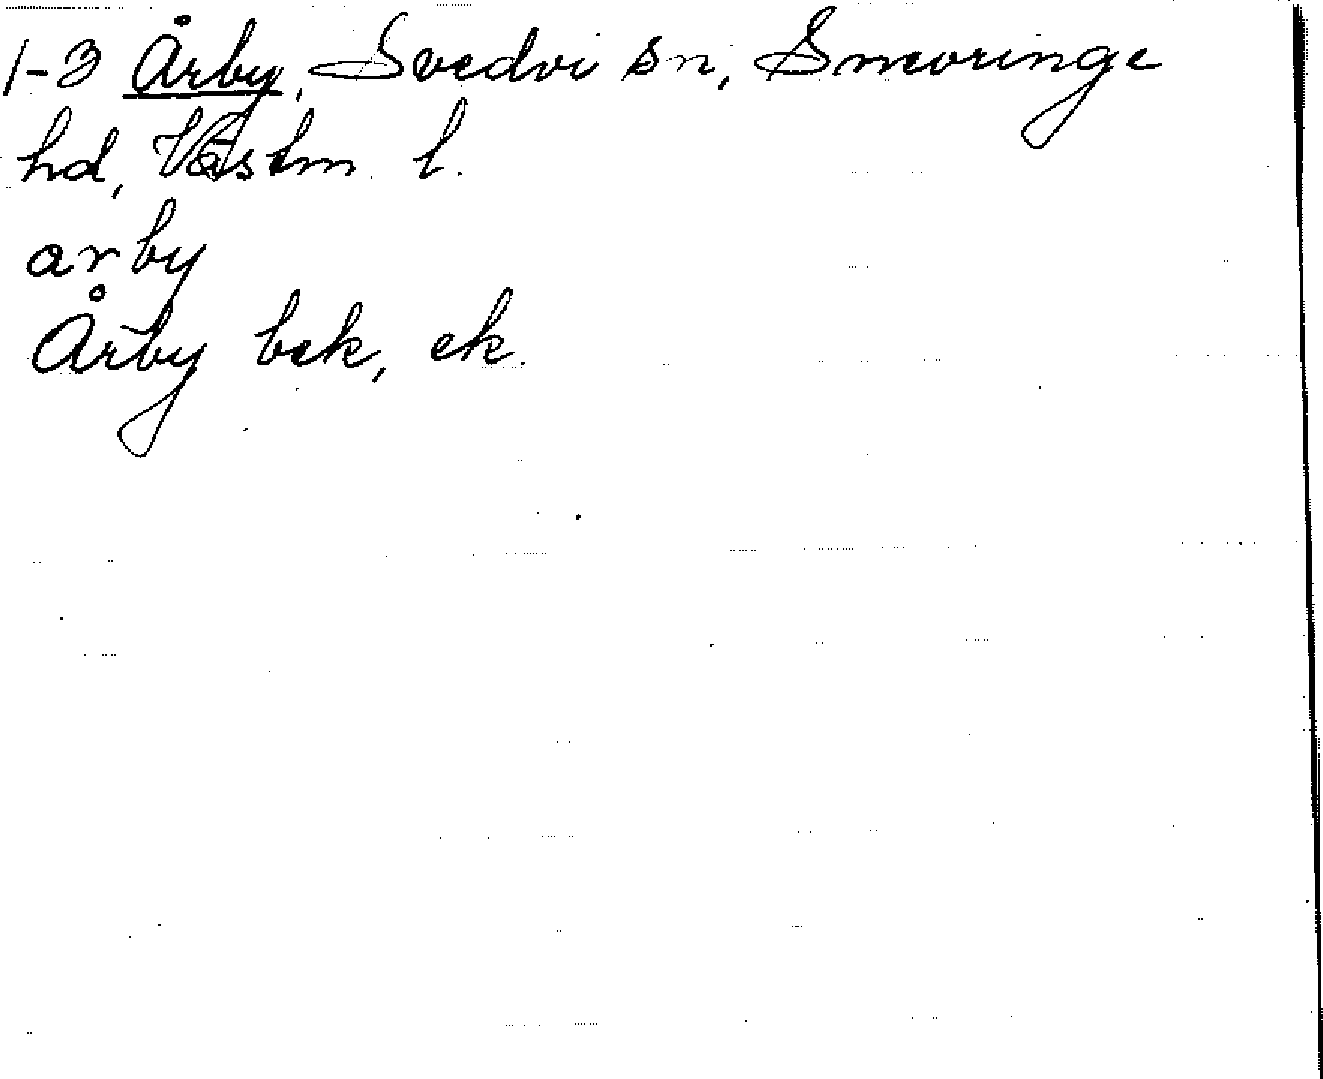 1-3 Årby, Svedvi sn, Snevringe
hd, Västm. l.
arby
Årby bek, ek.